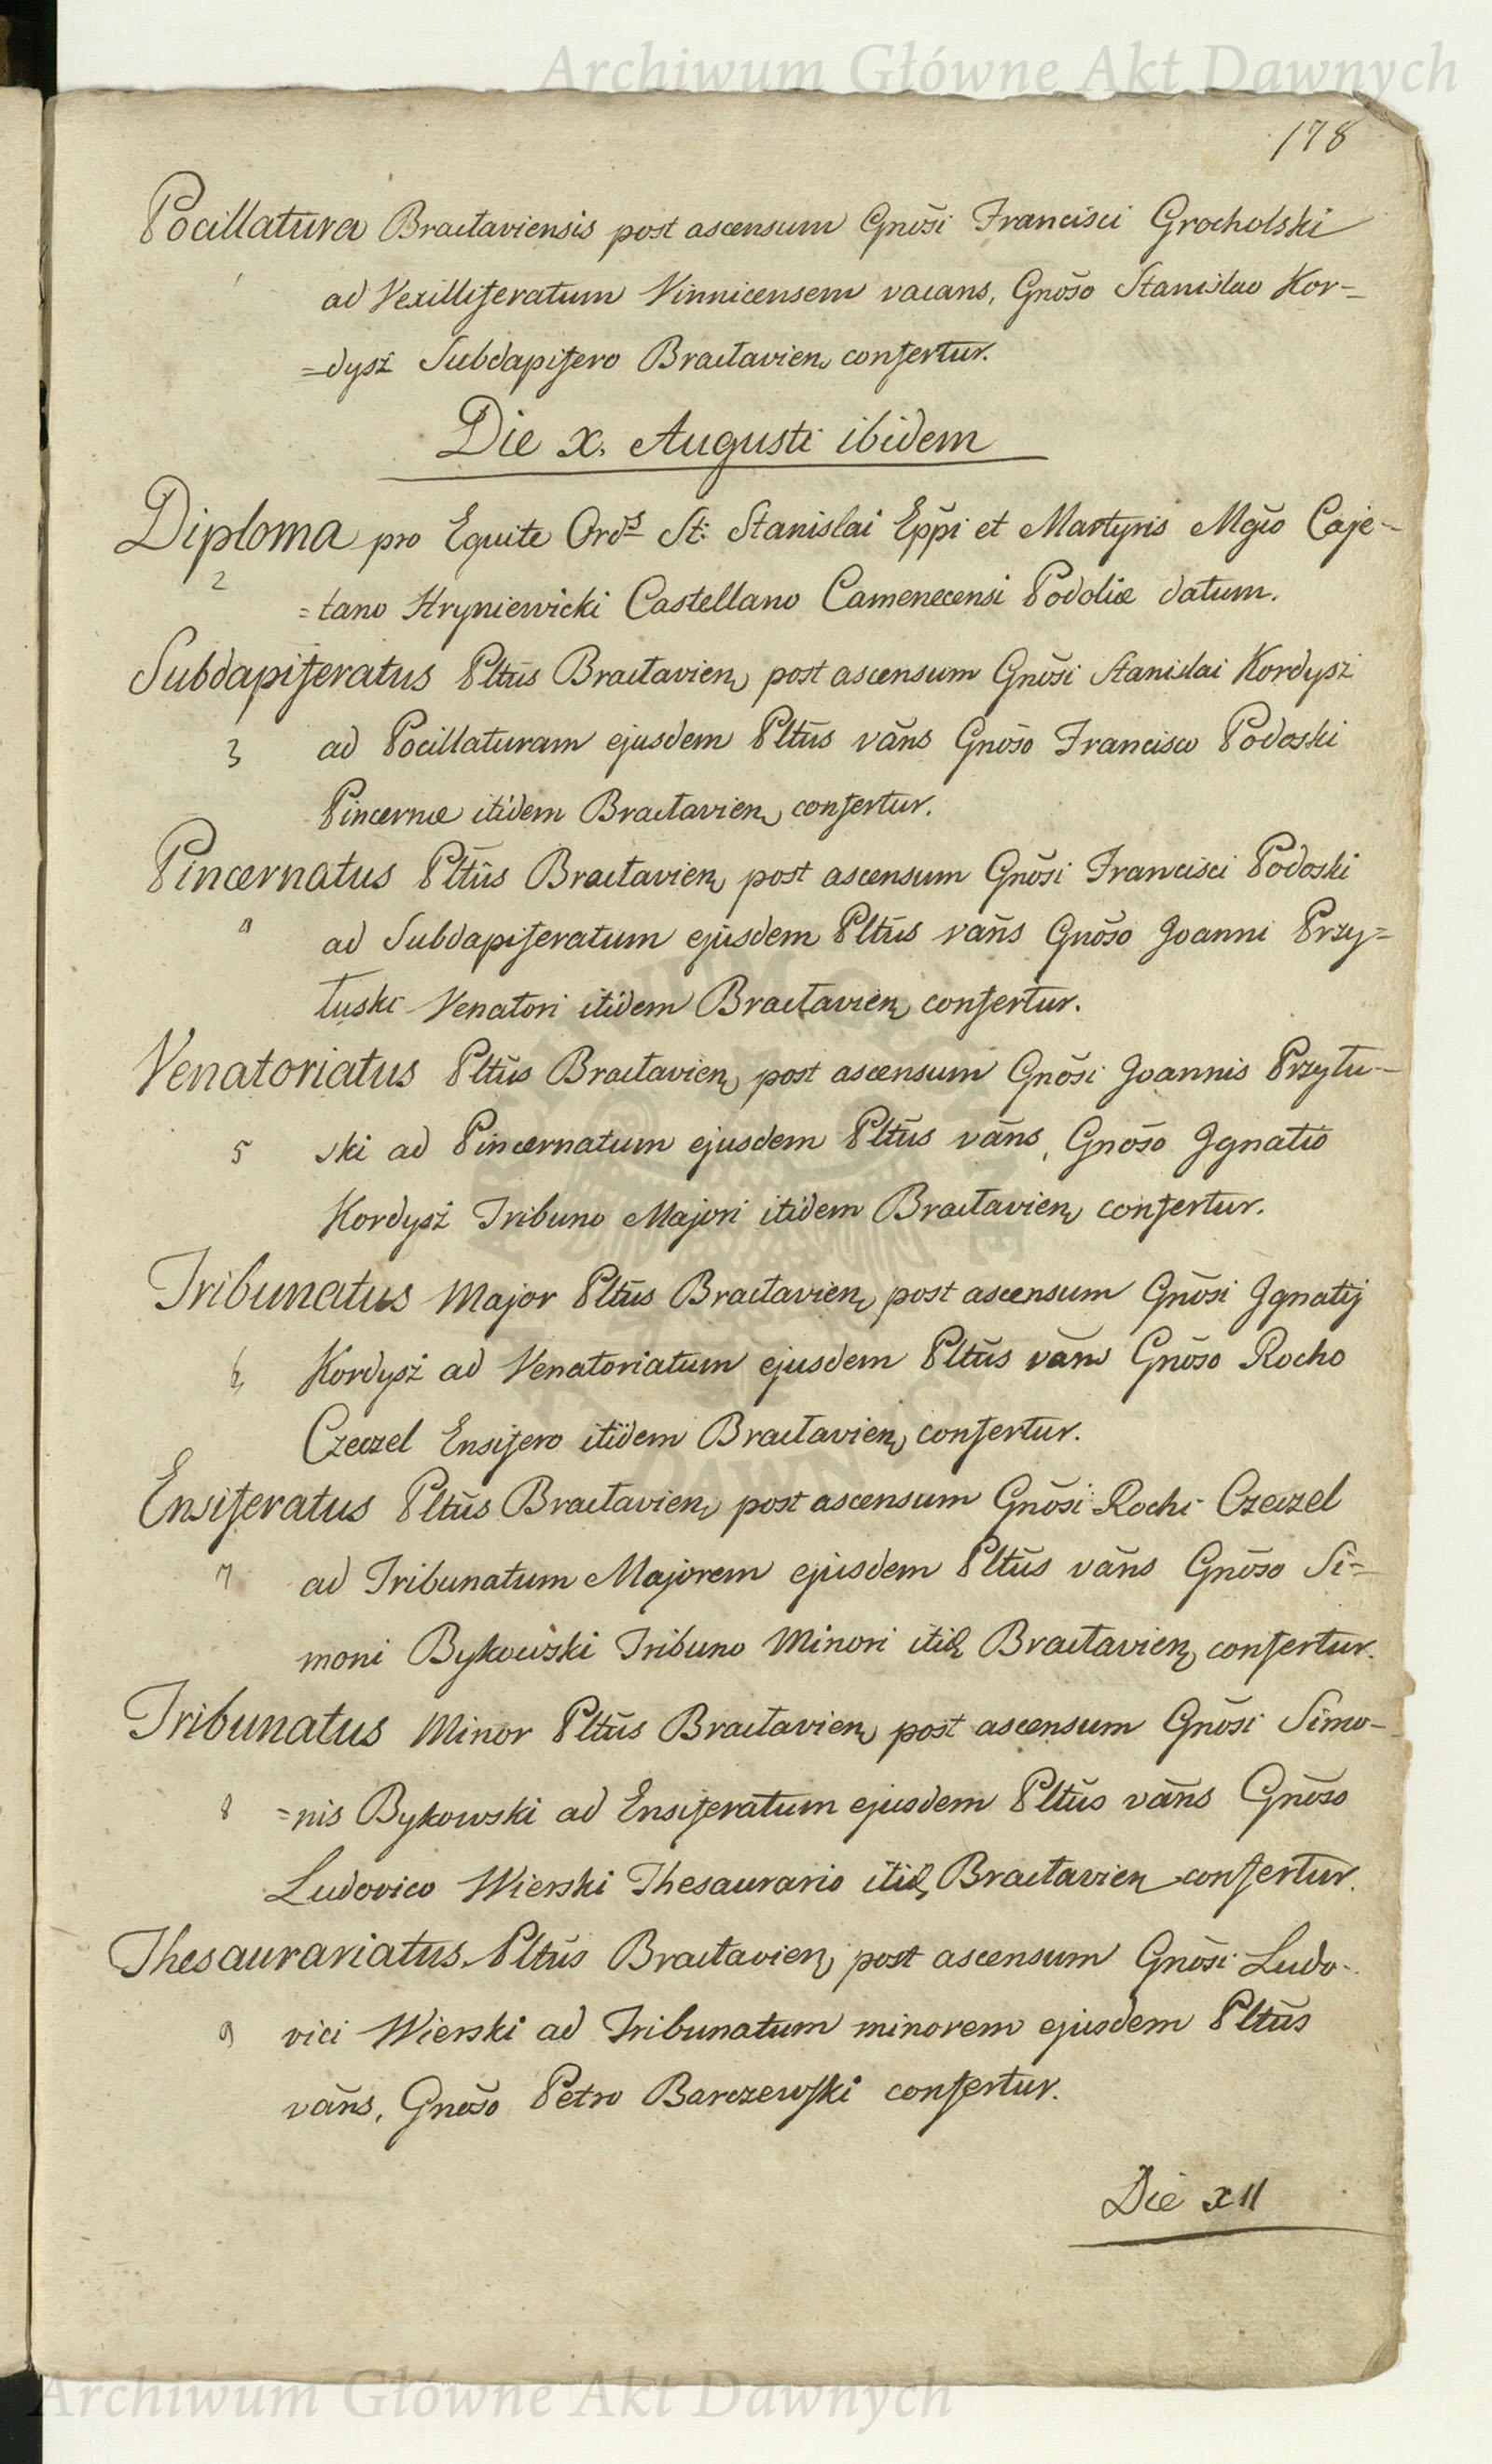 Archiwum Główne Akt Dawnych
178
Pocillatura Bractaviensis post ascensum Gnōsi Francisci Grocholski
1 ad Vexilliferatum Vinnicensem vacans, Gnōso Stanislao Kor=
=dysz Subdapifero Bractavien. confertur.
Die X. Augusti ibidem
Diploma pro Equite Ordˢ St: Stanislai Eppi et Martyris Mgco Caje=
2 =tano Hryniewicki Castellano Camenecensi Podoliæ datum.
Subdapiferatus Pltūs Bractavien. post ascensum Gnōsi Stanislai Kordysz
3 ad Pocillaturam ejusdem Pltūs vāns Gnōso Francisco Podoski
Pincernæ itidem Bractavien. confertur.
Pincernatus Pltūs Bractavien. post ascensum Gnōsi Francisci Podoski
4 ad Subdapiferatum ejusdem Pltūs vāns Gnōso Joanni Przy=
łuski Venatori itidem Bractavien. confertur.
Venatoriatus Pltūs Bractavien. post ascensum Gnōsi Joannis Przyłu-
5 ski ad Pincernatum ejusdem Pltūs vāns, Gnōso Ignatio
Kordysz Tribuno Majori itidem Bractavien. confertur.
Tribunatus Major Pltūs Bractavien. post ascensum Gnōsi Ignatij
6 Kordysz ad Venatoriatum ejusdem Pltūs vāns Gnōso Rocho
Czeczel Ensifero itidem Bractavien. confertur.
Ensiferatus Pltūs Bractavien. post ascensum Gnōsi Rochi Czeczel
7 ad Tribunatum Majorem ejusdem Pltūs vāns Gnōso Si=
moni Bykowski Tribuno Minori itid. Bractavien. confertur.
Tribunatus Minor Pltūs Bractavien. post ascensum Gnōsi Simo-
8 =nis Bykowski ad Ensiferatum ejusdem Pltūs vāns Gnōso
Ludovico Wierski Thesaurario itid. Bractavien confertur.
Thesaurariatus Pltūs Bractavien. post ascensum Gnōsi Ludo-
9 vici Wierski ad Tribunatum minorem ejusdem Pltūs
vāns, Gnōso Petro Barczewski confertur.
Die XII
Archiwum Główne Akt Dawnych